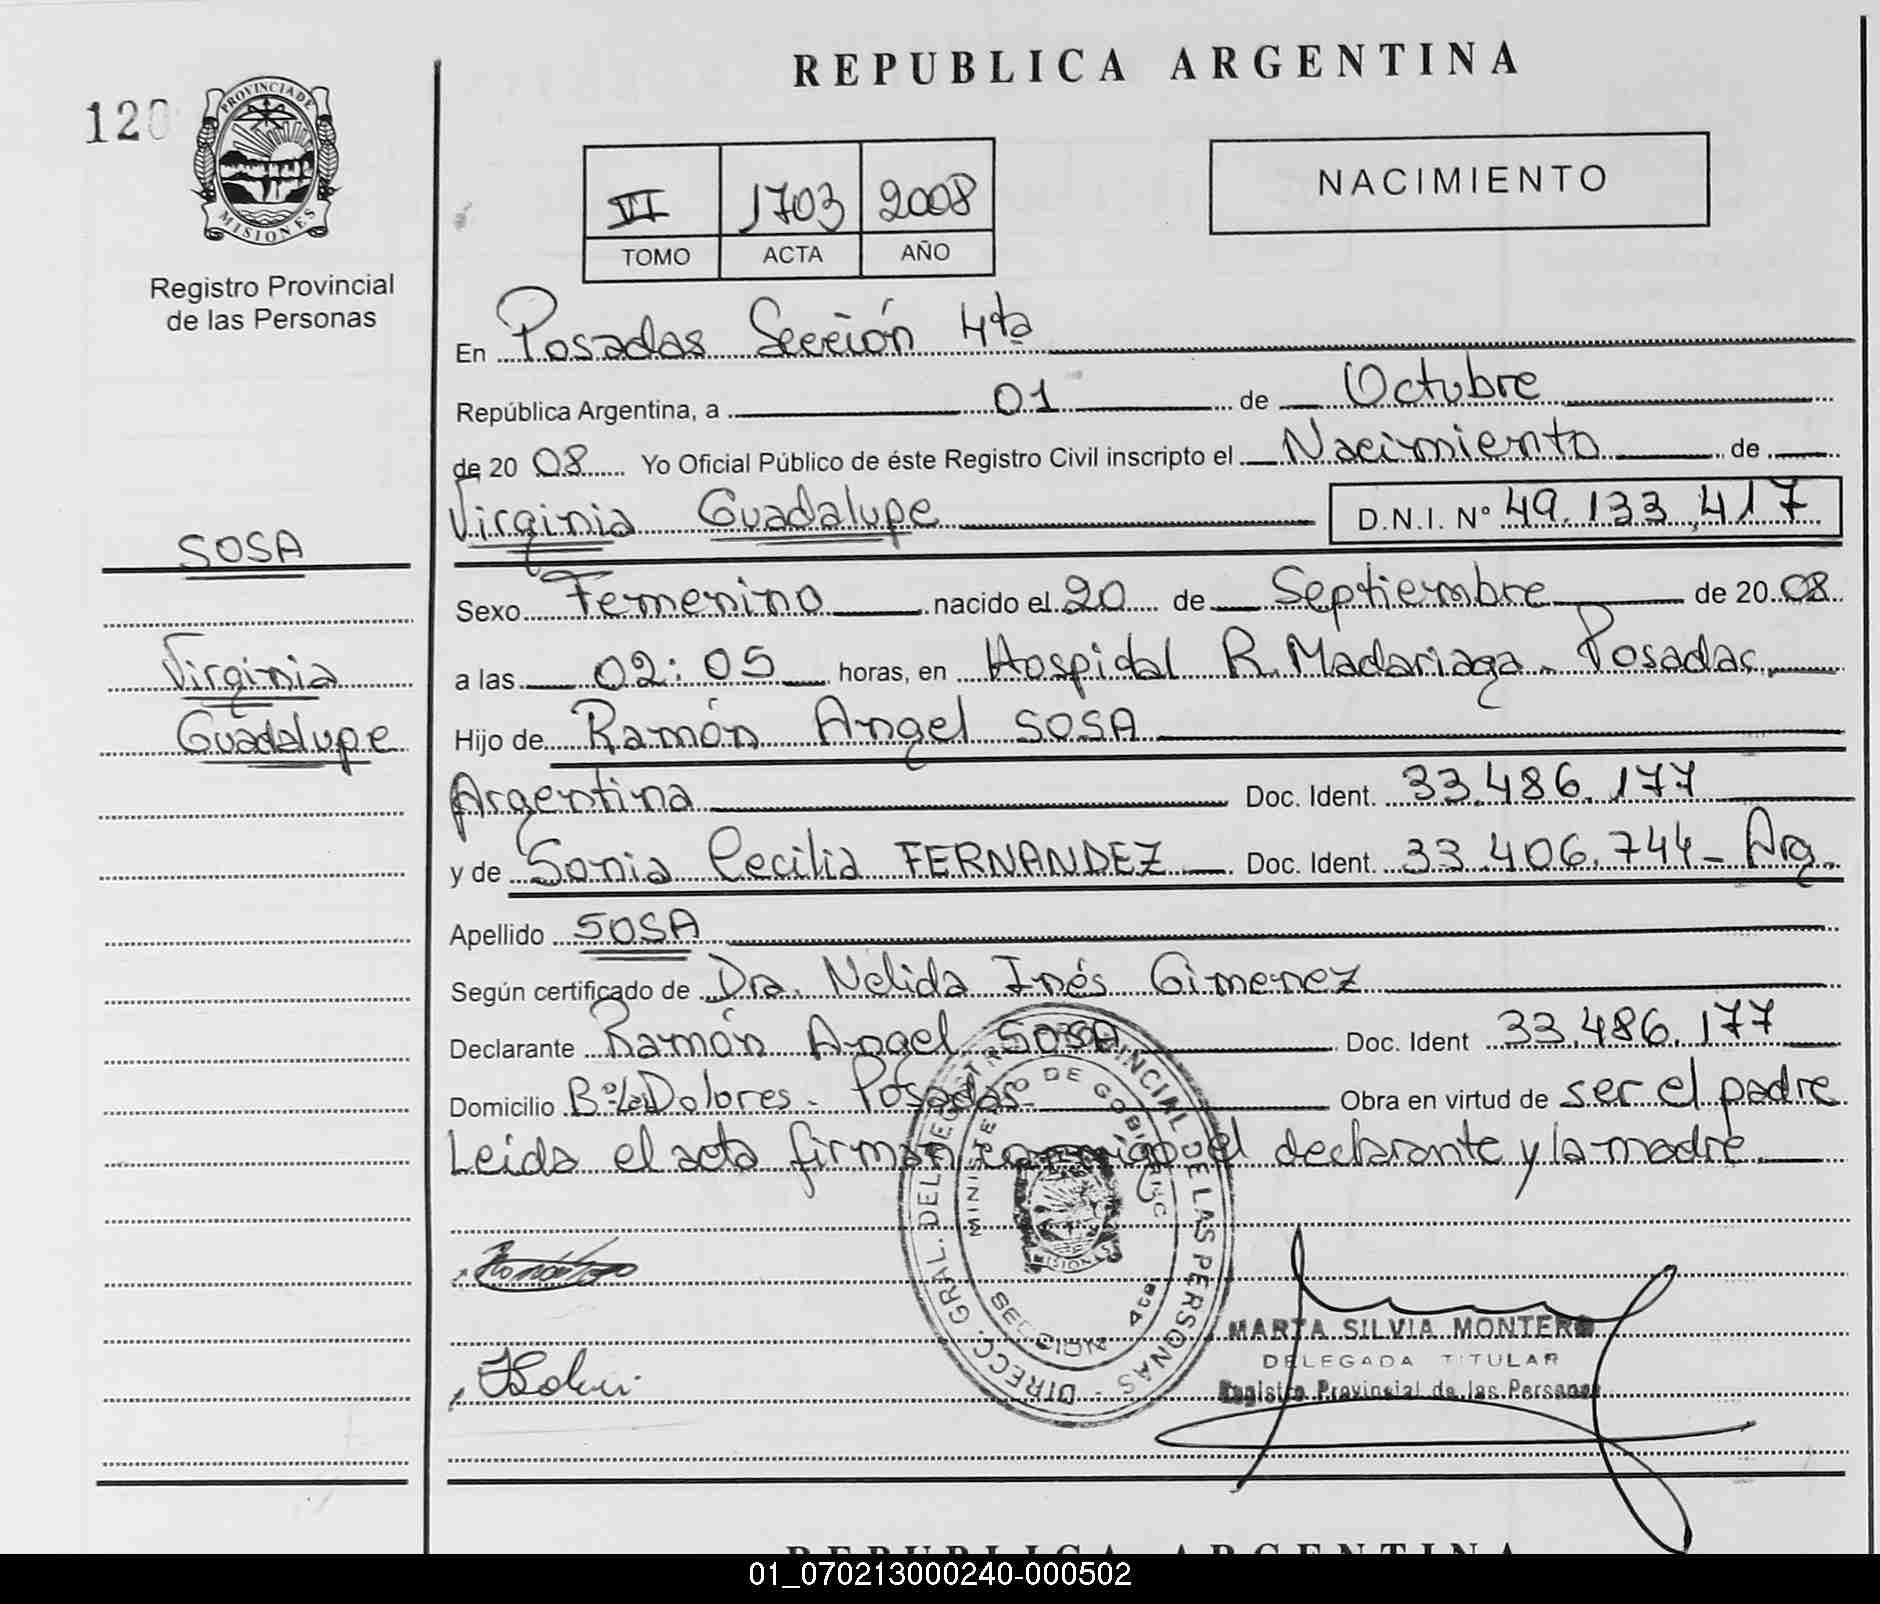 REPUBLICA ARGENTINA
120
PROVINCIA DE MISIONES
Registro Provincial
de las Personas
VI 1703 2008
TOMO ACTA AÑO
NACIMIENTO
En Posadas Sección 4ta
República Argentina, a 01 de Octubre
de 20 08 Yo Oficial Público de éste Registro Civil inscripto el Nacimiento de
Virginia Guadalupe D.N.I. N° 49.133.417
SOSA
Virginia
Guadalupe
Sexo Femenino nacido el 20 de Septiembre de 20 08
a las 02:05 horas, en Hospital R. Madariaga - Posadas
Hijo de Ramón Angel SOSA
Argentina Doc. Ident. 33.486.177
y de Sonia Cecilia FERNANDEZ Doc. Ident. 33.406.744 - Arg.
Apellido SOSA
Según certificado de Dra. Nelida Inés Gimenez
Declarante Ramón Angel SOSA Doc. Ident 33.486.177
Domicilio B° Dolores - Posadas - Obra en virtud de ser el padre
Leida el acta firman conmigo el declarante y la madre
DIRECC. GRAL. DEL REGISTRO PROVINCIAL DE LAS PERSONAS
MINISTERIO DE GOBIERNO
MISIONES
SECCION 4ta
MARTA SILVIA MONTERO
DELEGADA TITULAR
Registro Provincial de las Personas
REPUBLICA ARGENTINA
01_070213000240-000502